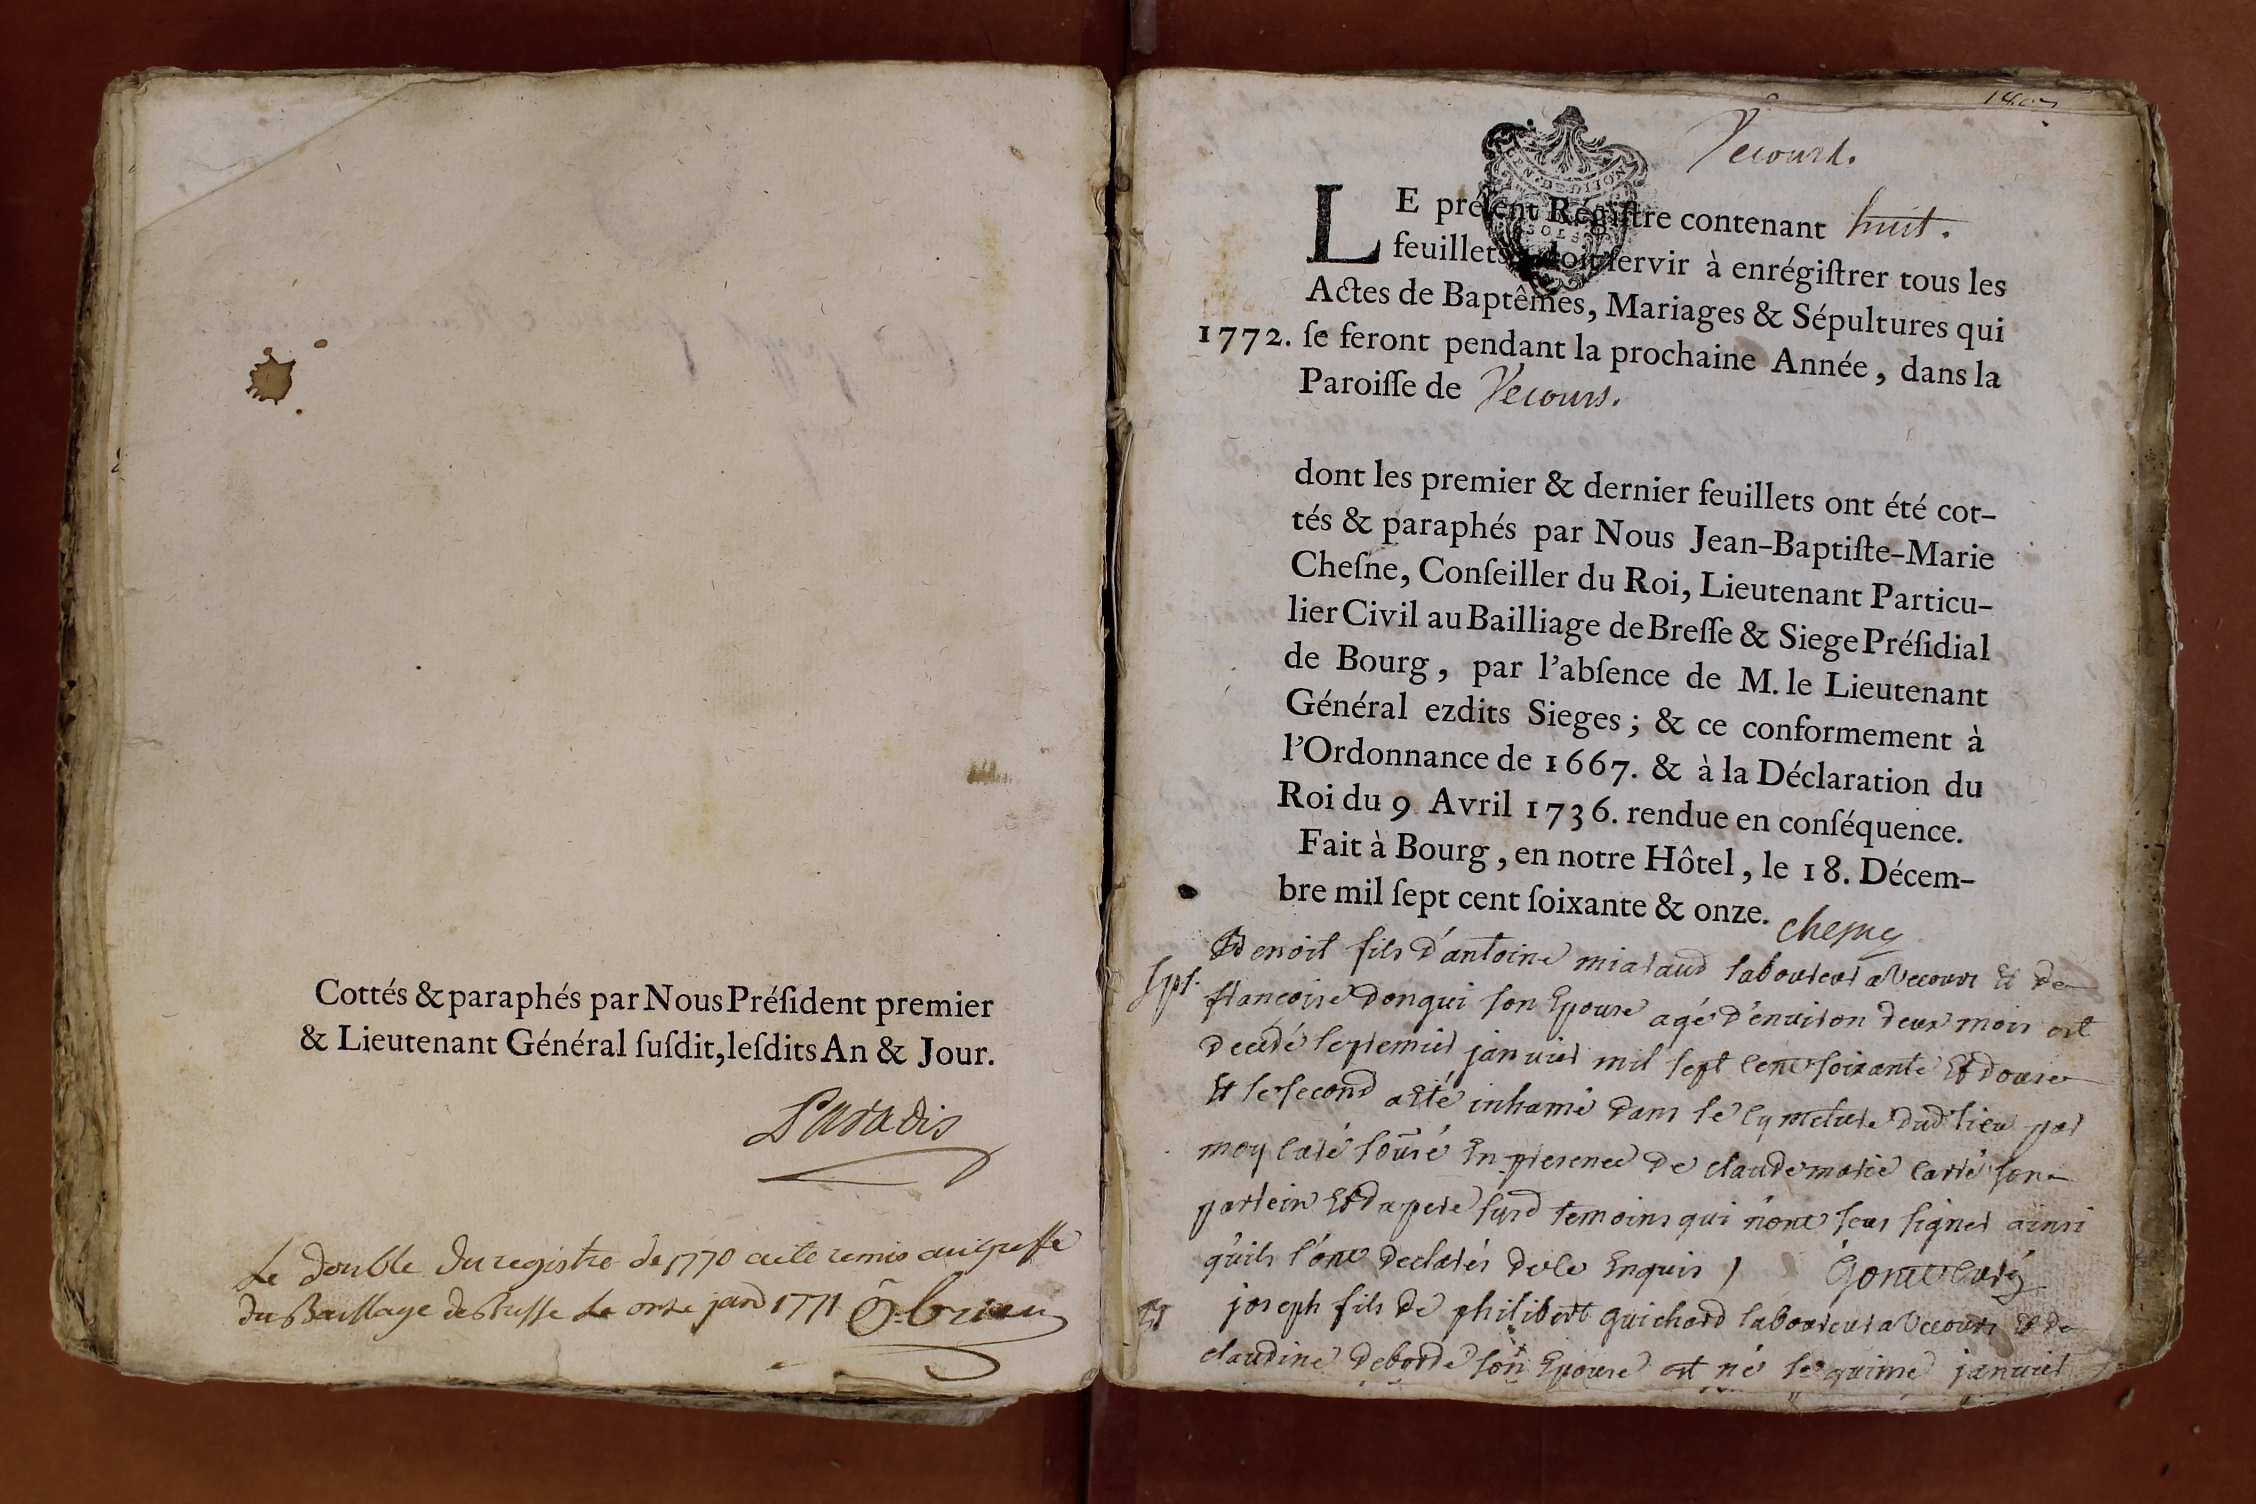 Cottés & paraphés par Nous Préſident premier
& Lieutenant Général ſuſdit, leſdits An & Jour.
Paradis
Le double du registre de 1770 a eté remis au greffe
du Baillage de Bresse le onze janv 1771
Vecourt.
GEN. DE DIJON
SOLS
LE préſent Régiſtre contenant huit.
feuillets, doit ſervir à enrégiſtrer tous les
Actes de Baptêmes, Mariages & Sépultures qui
1772. ſe feront pendant la prochaine Année, dans la
Paroiſſe de Vecours.
dont les premier & dernier feuillets ont été cot-
tés & paraphés par Nous Jean-Baptiſte-Marie
Cheſne, Conſeiller du Roi, Lieutenant Particu-
lier Civil au Bailliage de Breſſe & Siege Préſidial
de Bourg, par l'abſence de M. le Lieutenant
Général ezdits Sieges; & ce conformement à
l'Ordonnance de 1667. & à la Déclaration du
Roi du 9 Avril 1736. rendue en conſéquence.
Fait à Bourg, en notre Hôtel, le 18. Décem-
bre mil ſept cent ſoixante & onze.
Chesne
Benoit fils d'antoine miaraud laboureur a Vecours Et de
Spt. francoise donqui son Epouse agé d'environ deux mois est
decédé le premier janvier mil sept cent soixante Et douse
Et le second a eté inhumé dans le cymetiere dud lieu par
moy curé souśé En presence de claude marie carré son
parrein Et du pere susd temoins qui n'ont sceu signer ainsi
qu'ils l'ont declarés de ce Enquis
joseph fils de philibert guichard laboureur a Vecours Et de
claudine deborde son Epouse est né le quinse janvier